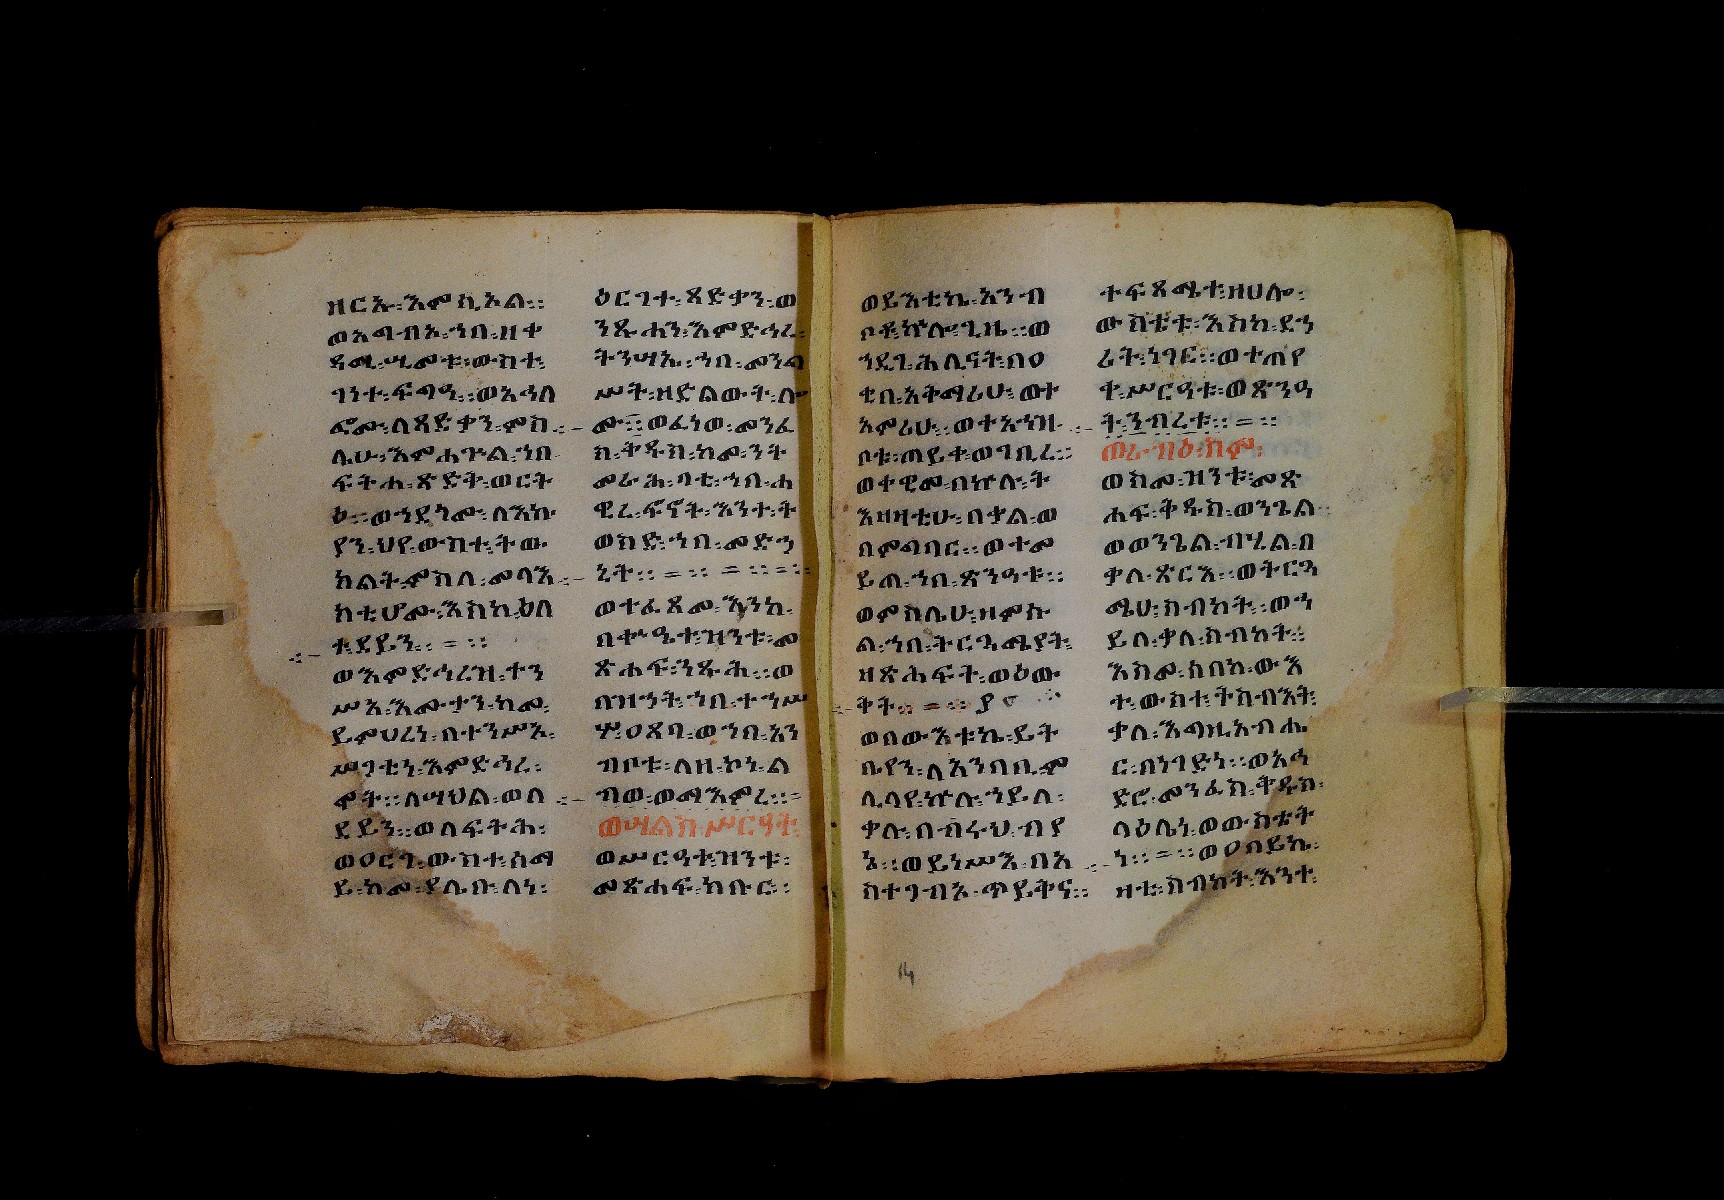 ዘርኡ፡እምሲኦል።
ወአግብኦ፡ኀበ፡ዘቀ
ዳሚ፡ሢመቱ፡ውስተ፡
ገነተ፡ፍግዓ።ወአኅለ
ፎሙ፡ለጻድቃን፡ምስ
ሌሁ፡እምሐጕል፡ኀበ
ፍትሐ፡ጽድቅ፡ወርት
ዕ።ወኀደጎሙ፡ለእኩ
ያን፡ህየ፡ውስተ፡ትው
ክልት፡ምስለ፡መላእ
ክቲሆሙ፡እስከ፡ዕለ
ተ፡ደይን። = ።
ወእምድኅረዝ፡ተን
ሥአ፡እሙታን፡ከመ፡
ይምሀረነ፡በተንሥኦ፡
ሥጋቲነ፡እምድኅረ፡
ሞት።ለሣህል፡ወለ
ደይን።ወለፍትሕ፡
ወዐርገ፡ውስተ፡ሰማ
ይ፡ከመ፡ያሌቡ፡ለነ፡
ዕርገተ፡ጻድቃን፡ወ
ንጹሐን፡እምድኅረ፡
ትንሣኤ፡ኀበ፡መንግ
ሥት፡ዘድልው፡ሎ
ሙ።ወፈነወ፡መንፈ
ሰ፡ቅዱስ፡ከመ፡ንት
መራሕ፡ባቲ፡ኀበ፡ሐ
ዊረ፡ፍኖት፡እንተ፡ት
ወስድ፡ኀበ፡መድኀ
ኒት። = ። = ። = ።
ወተፈጸመ፡እንከ፡
በቀዳሜ፡ዝንቱ፡መ
ጽሐፍ፡ንጹሕ።ወ
በዝኅት፡ኀበ፡ተኀሥ
ሦ፡ዐጸባ፡ወኀበ፡አን
ብቦቱ፡ለዘ፡ኮነ፡ል
ብወ፡ወማእምረ። =
ወሣልስ፡ሥርዓት፡
ወሥርዓቱ፡ዝንቱ፡
መጽሐፍ፡ክቡር።
ወይእቲኬ፡አንብ
ቦቱ፡ኵሎ፡ጊዜ።ወ
ኀደጊ፡ሕሊናት፡በዐ
ቂበ፡አትማሪሁ፡ወተ
አምሪሁ።ወተአኀዝ
ቦቱ፡ጠይቀ፡ወገቢረ።
ወቀዊመ፡በኵሉ፡ት
እዛዛቲሁ፡በቃል፡ወ
በምግባር።ወተመ
ይጠ፡ኀበ፡ጽንዓቱ።
ወምስሌሁ፡ዘምስ
ል፡ኀበ፡ትርጓሜያት፡
ዘጽሕፍት፡ወዕው
ቅት። = ።
ወበውእቱኬ፡ይት
በየን፡ለአንባቢ፡ም
ሲላየ፡ኵሉ፡ኀይለ፡
ቃሉ፡በብሩህ፡ብያ
ኔ።ወይነሥእ፡በአ
ስተጋብኦ፡ጥይቅና።
ተፍጻሜተ፡ዘሀሎ፡
ውስቴቱ፡እስከ፡ደኀ
ሪት፡ነገር።ወተጠየ
ቀ፡ሥርዓቱ፡ወጽንዓ
ት፡ንብረቱ። = ።
ወራብዕ፡ስም፡
ወስመ፡ዝንቱ፡መጽ
ሐፍ፡ቅዱስ፡ወንጌል።
ወወንጌል፡ብሂል፡በ
ቃለ፡ጽርእ።ወትርጓ
ሜሁ፡ስብከት።ወኀ
ይለ፡ቃለ፡ስብከት።
እስመ፡ሰበከ፡ውእ
ቱ፡ውስተ፡ትስብእት፡
ቃለ፡እግዚአብሔ
ር፡በነገድነ።ወአኅ
ደሮ፡መንፈስ፡ቅዱስ፡
ላዕሌነ፡ወውስቴት
ነ። = ።ወዐበይኬ፡
ዛቲ፡ስብከት፡እንተ፡
14